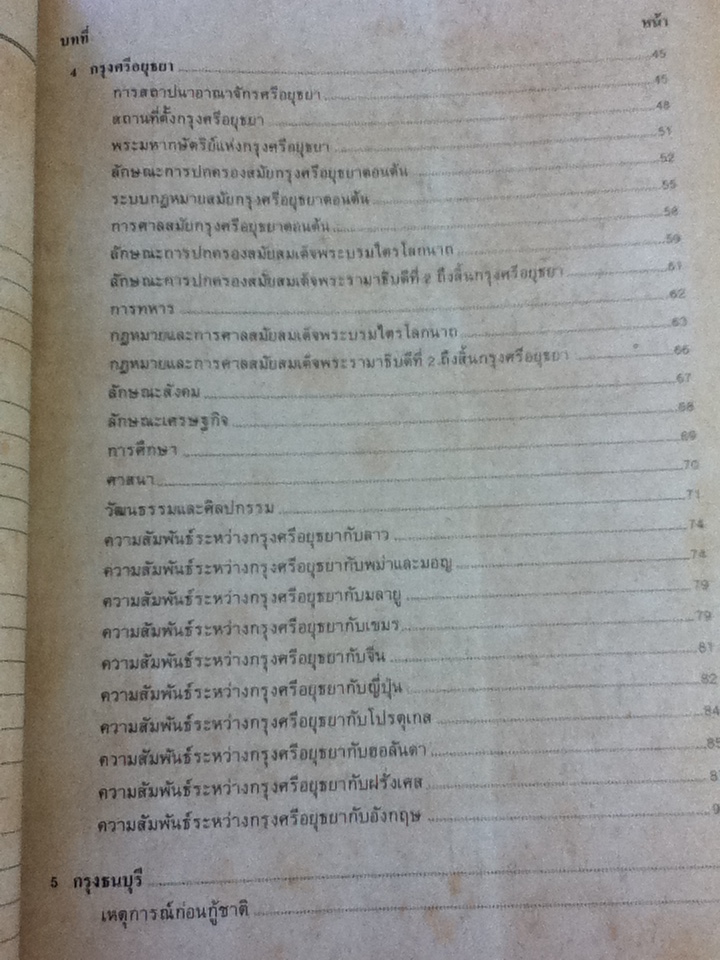 บทที่ หน้า
4 กรุงศรีอยุธยา 45
การสถาปนาอาณาจักรศรีอยุธยา 45
สถานที่ตั้งกรุงศรีอยุธยา 48
พระมหากษัตริย์แห่งกรุงศรีอยุธยา 51
ลักษณะการปกครองสมัยกรุงศรีอยุธยาตอนต้น 52
ระบบกฎหมายสมัยกรุงศรีอยุธยาตอนต้น 55
การศาลสมัยกรุงศรีอยุธยาตอนต้น 58
ลักษณะการปกครองสมัยสมเด็จพระบรมไตรโลกนาถ 59
ลักษณะการปกครองสมัยสมเด็จพระรามาธิบดีที่ 2 ถึงสิ้นกรุงศรีอยุธยา 61
การทหาร 62
กฎหมายและการศาลสมัยสมเด็จพระบรมไตรโลกนาถ 63
กฎหมายและการศาลสมัยสมเด็จพระรามาธิบดีที่ 2 ถึงสิ้นกรุงศรีอยุธยา 66
ลักษณะสังคม 67
ลักษณะเศรษฐกิจ 68
การศึกษา 69
ศาสนา 70
วัฒนธรรมและศิลปกรรม 71
ความสัมพันธ์ระหว่างกรุงศรีอยุธยากับลาว 74
ความสัมพันธ์ระหว่างกรุงศรีอยุธยากับพม่าและมอญ 74
ความสัมพันธ์ระหว่างกรุงศรีอยุธยากับมลายู 79
ความสัมพันธ์ระหว่างกรุงศรีอยุธยากับเขมร 79
ความสัมพันธ์ระหว่างกรุงศรีอยุธยากับจีน 81
ความสัมพันธ์ระหว่างกรุงศรีอยุธยากับญี่ปุ่น 82
ความสัมพันธ์ระหว่างกรุงศรีอยุธยากับโปรตุเกส 84
ความสัมพันธ์ระหว่างกรุงศรีอยุธยากับฮอลันดา 85
ความสัมพันธ์ระหว่างกรุงศรีอยุธยากับฝรั่งเศส
ความสัมพันธ์ระหว่างกรุงศรีอยุธยากับอังกฤษ
5 กรุงธนบุรี
เหตุการณ์ก่อนกู้ชาติ